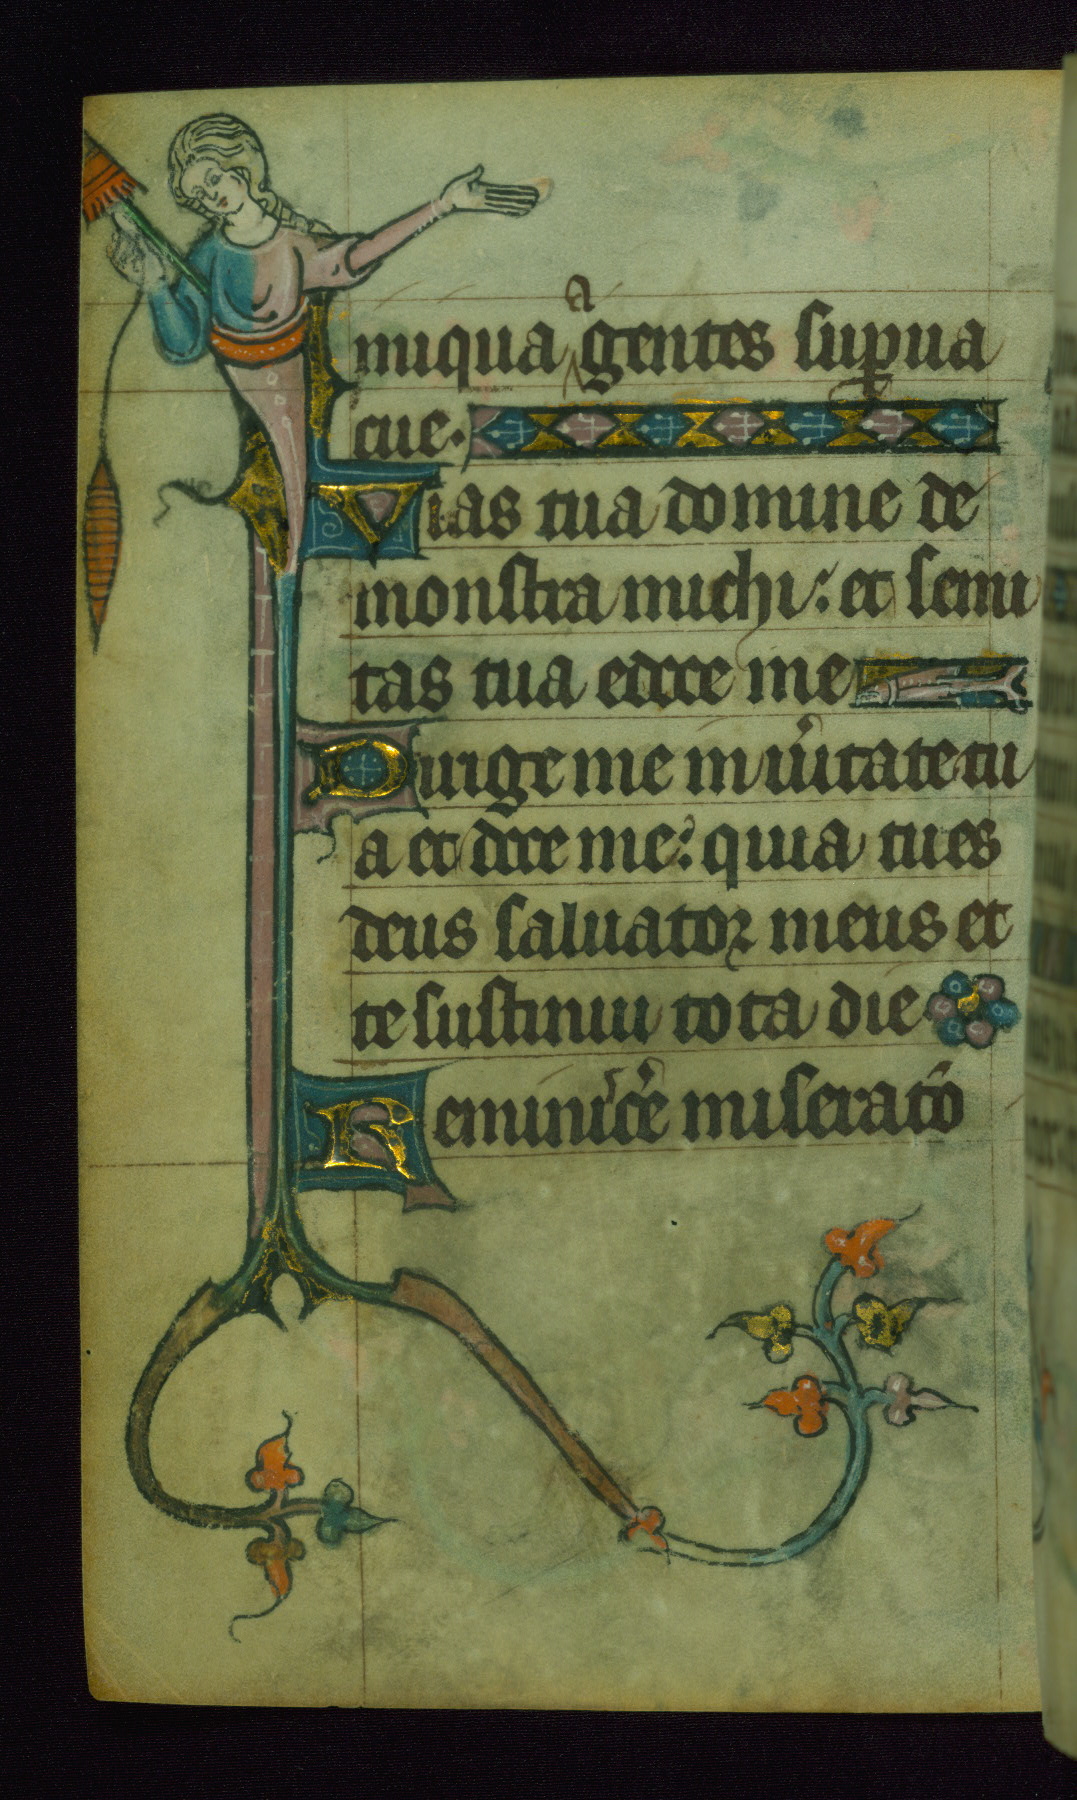 a
iniqua gentes suꝑua
cue.
Vias tua domine de
monstra michi: et semi
tas tua edoce me
Dirige me in u̾itate tu
a et doce me: quia tu es
deus saluator meus et
te sustinui tota die
Reminiˢce̾ miseratō